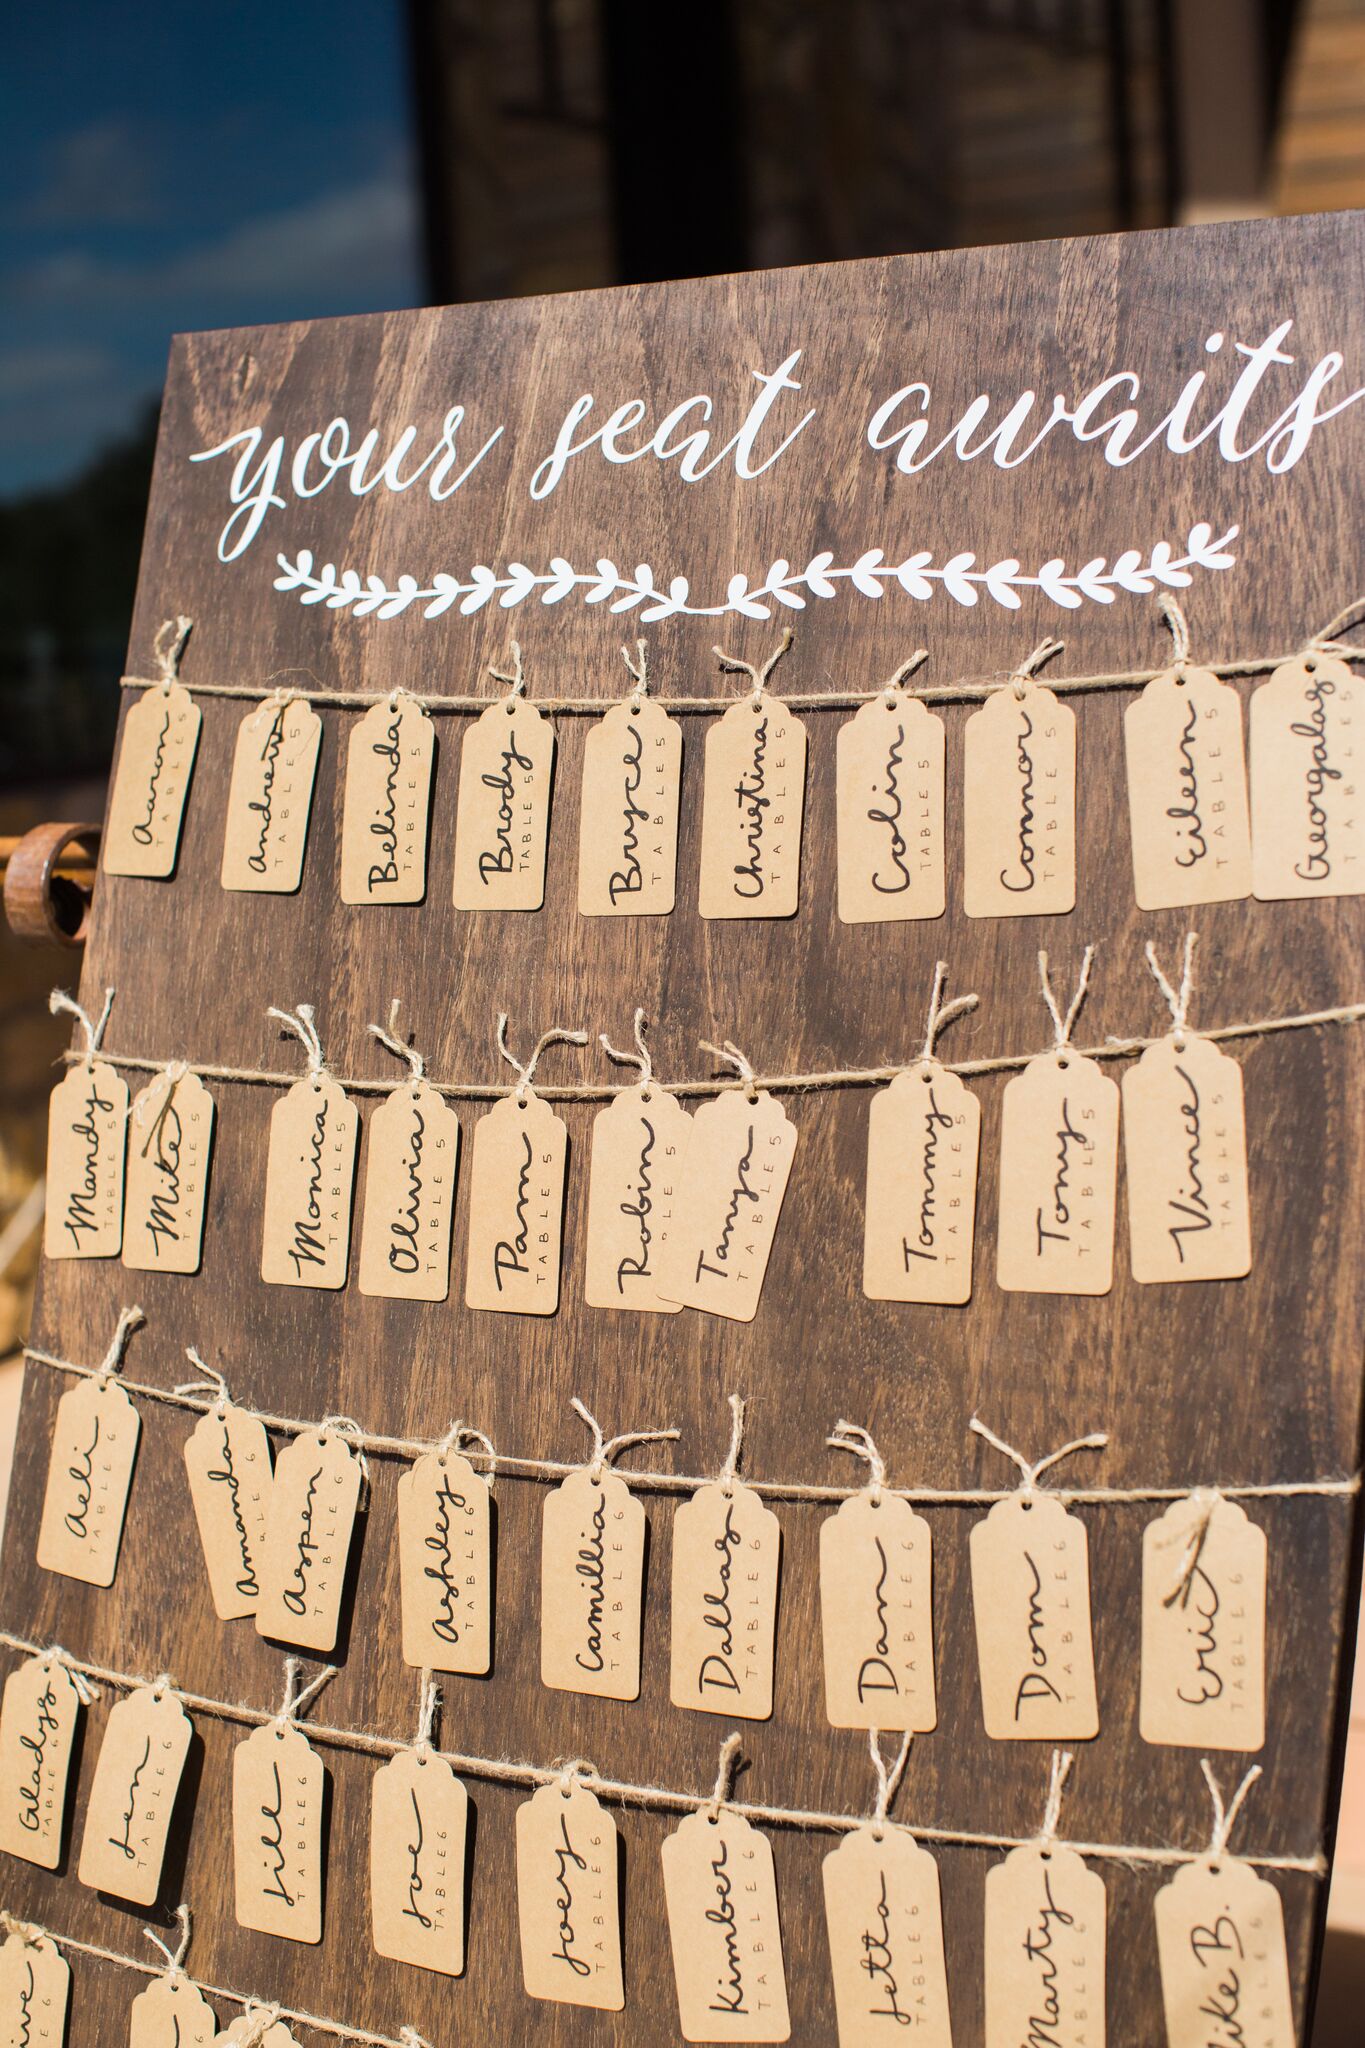 your seat awaits
Aaron
TABLE 5
Andrew
TABLE 5
Belinda
TABLE 5
Brody
TABLE 5
Bryce
TABLE 5
Christina
TABLE 5
Colin
TABLE 5
Connor
TABLE 5
Eileen
TABLE 5
Georgalas
TABLE 5
Mandy
TABLE 5
Mike
TABLE 5
Monica
TABLE 5
Olivia
TABLE 5
Pam
TABLE 5
Robin
BLE 5
Tanya
TABLE 5
Tommy
TABLE 5
Tony
TABLE 5
Vince
TABLE 5
Aeli
TABLE 6
Amanda
ABLE 6
Aspen
TABLE 6
Ashley
TABLE 6
Camillia
TABLE 6
Dallas
TABLE 6
Dan
TABLE 6
Dom
TABLE 6
Eric
TABLE 6
Gladys
TABLE 6
Jen
TABLE 6
Jill
TABLE 6
Joe
TABLE 6
Joey
TABLE 6
Kimber
TABLE 6
Jetta
TABLE 6
Marty
TABLE 6
ike B.
ABLE 6
ive
6
6